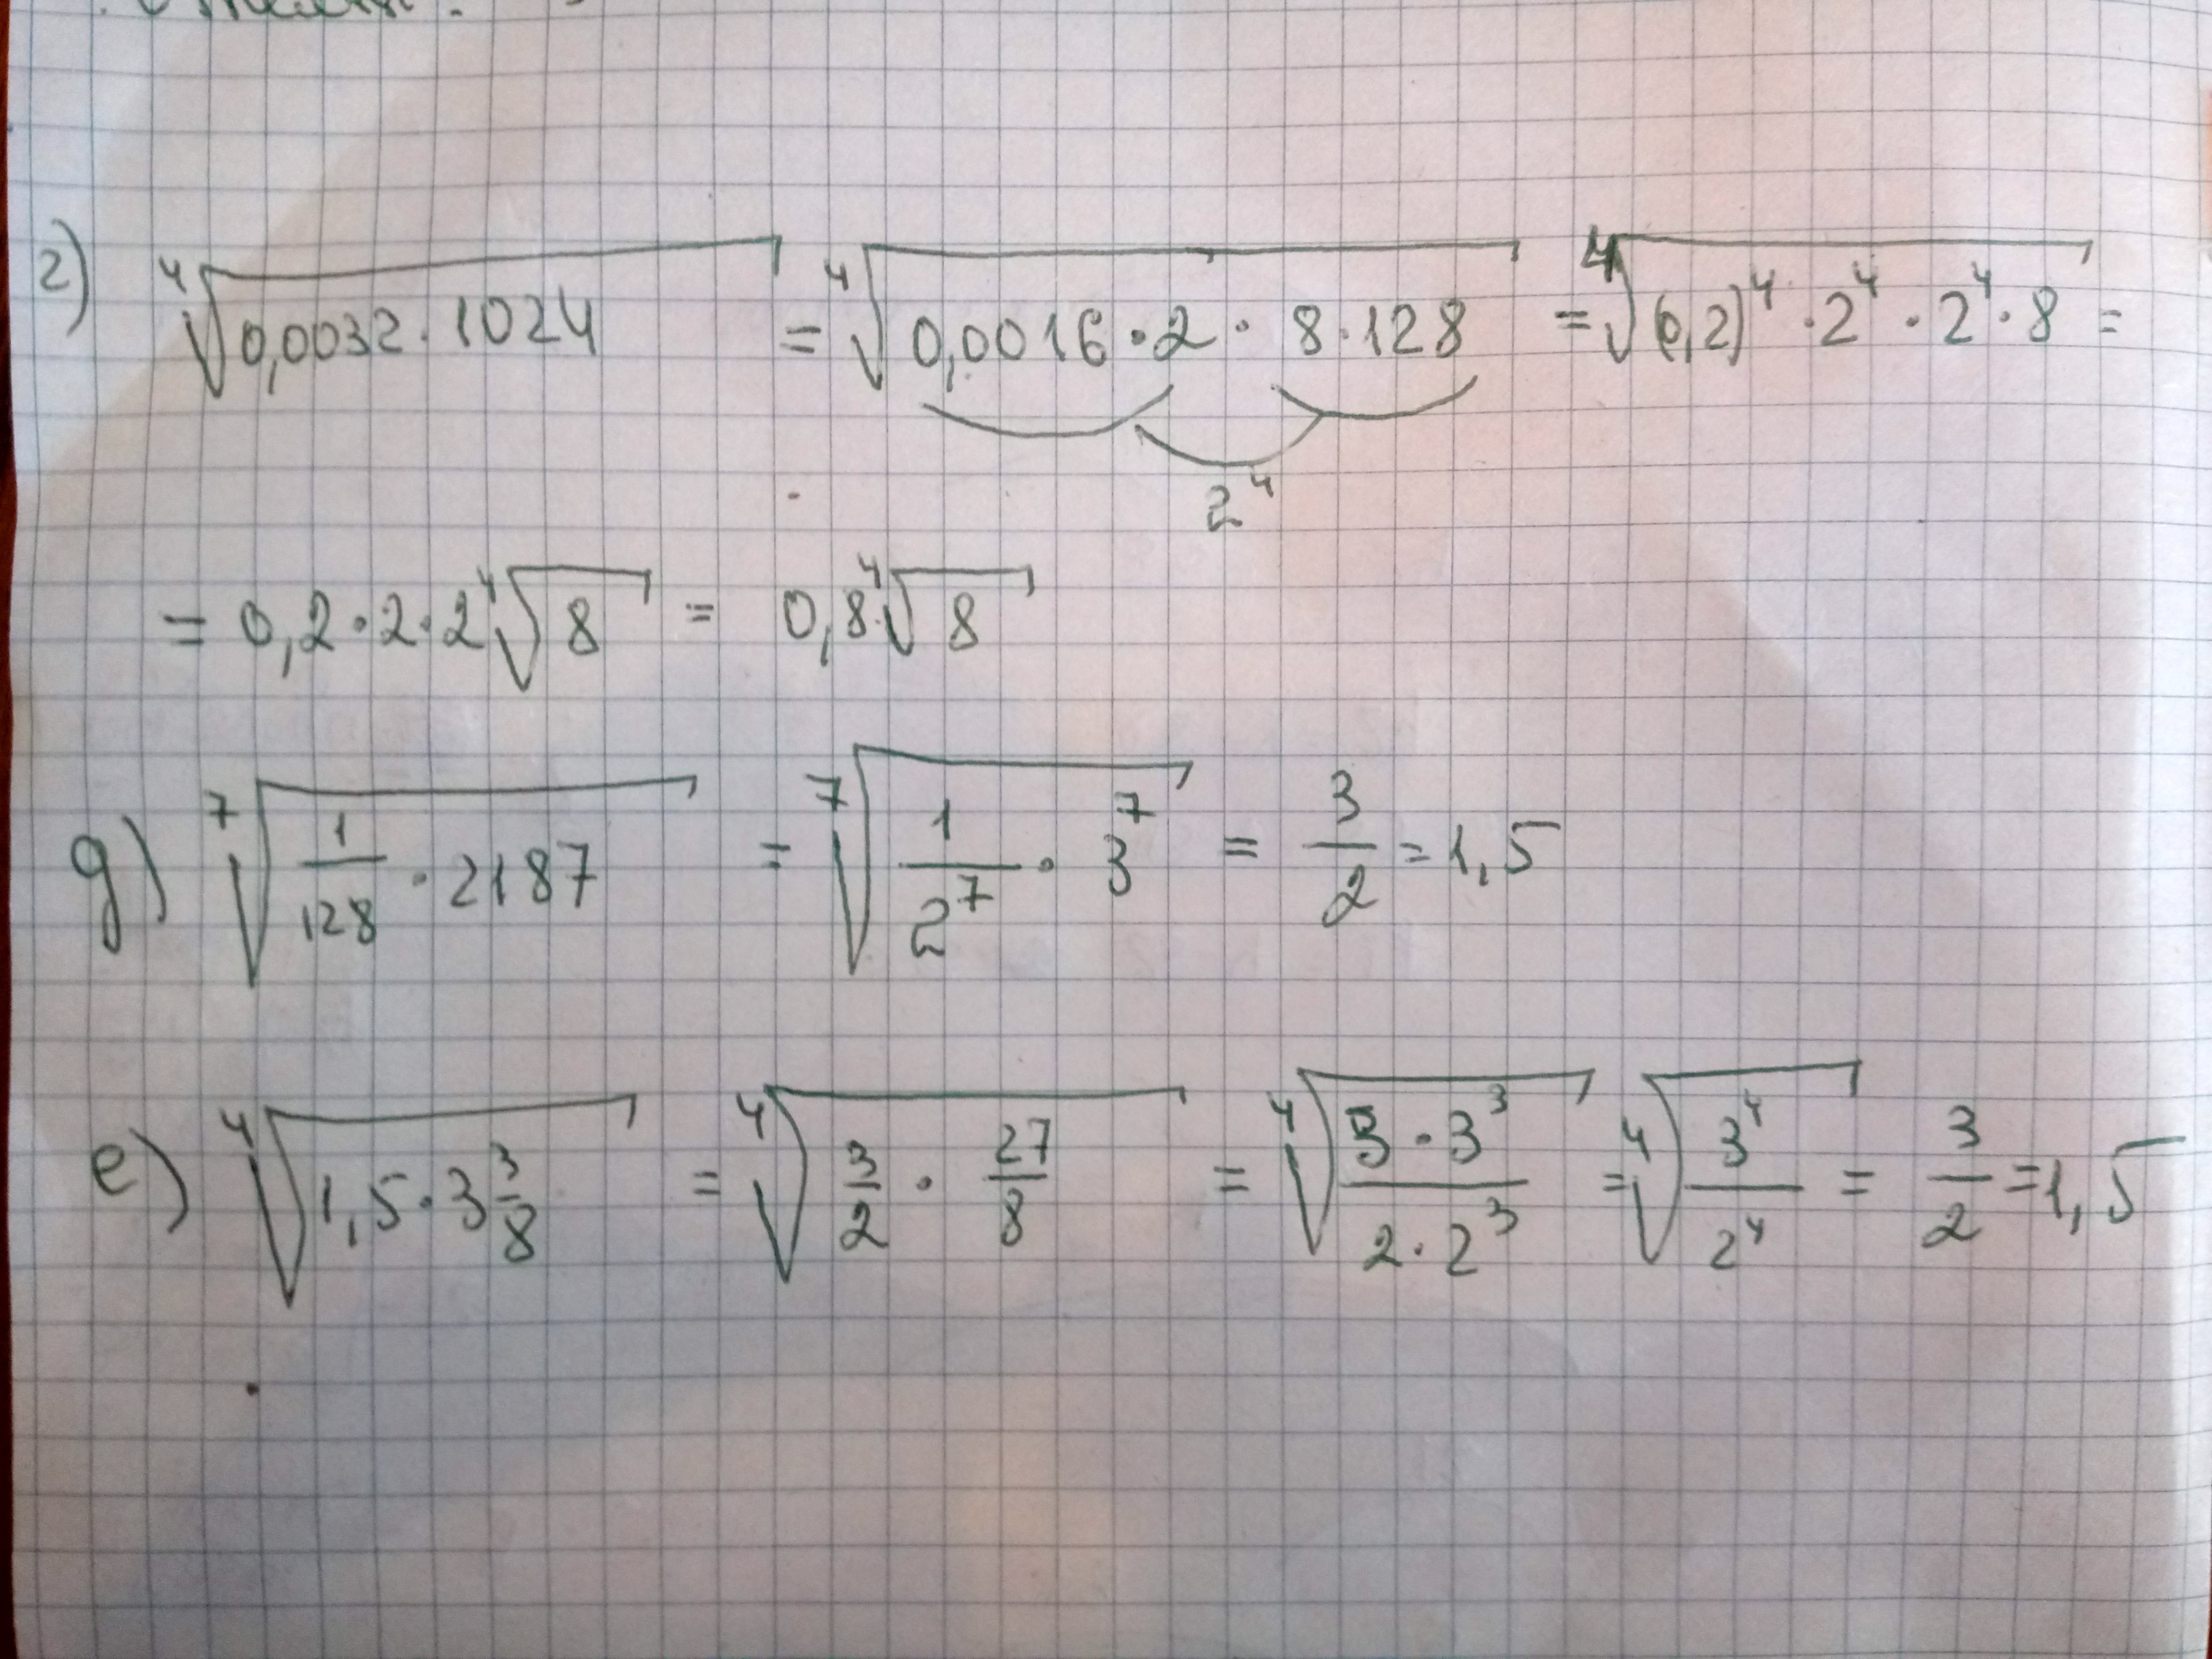 г) ⁴√(0,0032 · 1024) = ⁴√(0,0016 · 2 · 8 · 128) = ⁴√((0,2)⁴ · 2⁴ · 2⁴ · 8) =
2⁴
= 0,2 · 2 · 2 ⁴√8 = 0,8 ⁴√8
g) ⁷√(1/128 · 2187) = ⁷√(1/2⁷ · 3⁷) = 3/2 = 1,5
е) ⁴√(1,5 · 3 3/8) = ⁴√(3/2 · 27/8) = ⁴√((3 · 3³)/(2 · 2³)) = ⁴√(3⁴/2⁴) = 3/2 = 1,5